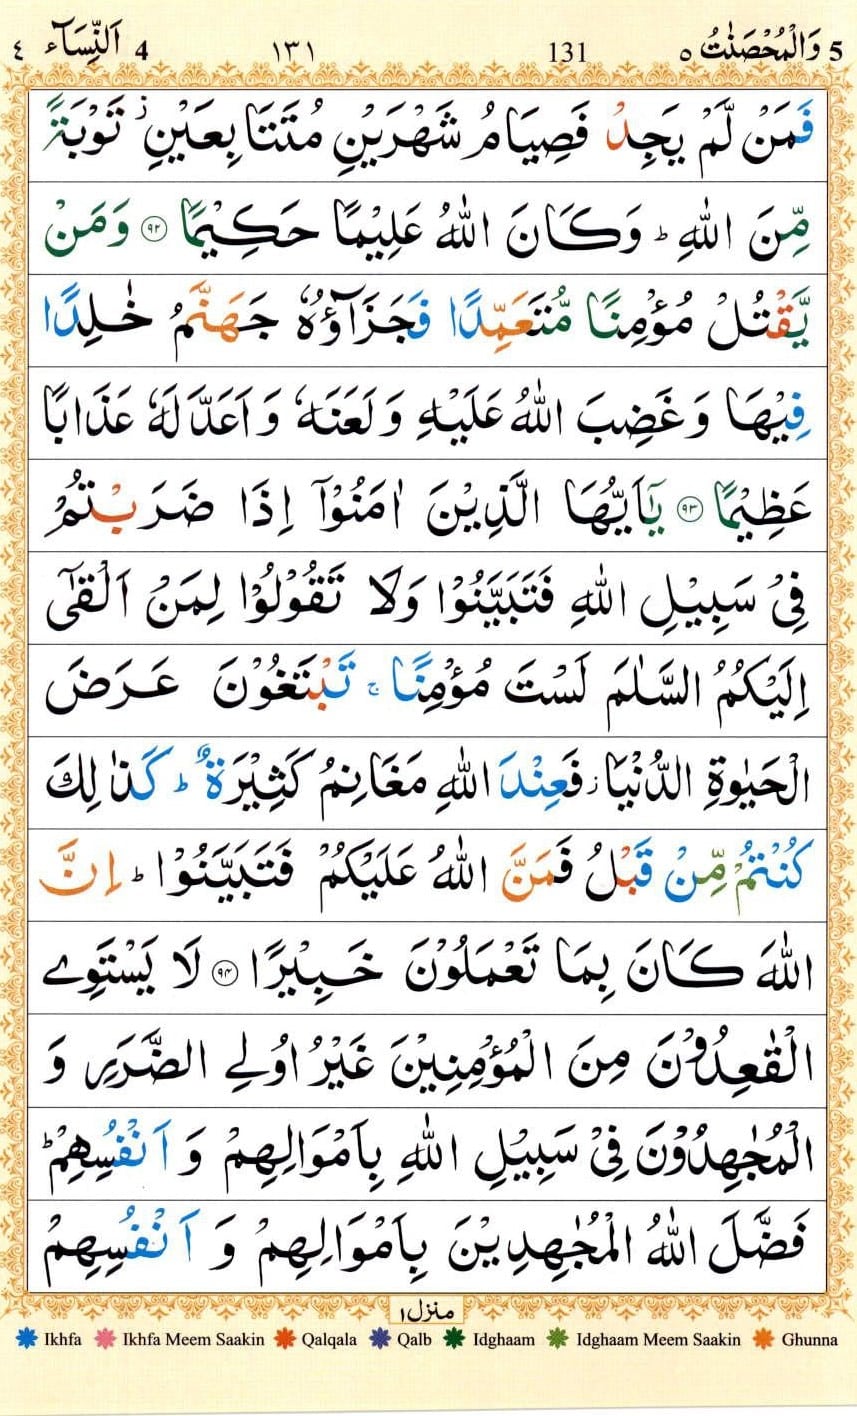 5 وَالْمُحْصَنٰتُ ٥ 131 ١٣١ 4 اَلنِّسَآء ٤
فَمَنْ لَّمْ يَجِدْ فَصِيَامُ شَهْرَيْنِ مُتَتَابِعَيْنِ ۫ تَوْبَةً
مِّنَ اللّٰهِ ؕ وَكَانَ اللّٰهُ عَلِيْمًا حَكِيْمًا ﴿۹۲﴾ وَمَنْ
يَّقْتُلْ مُؤْمِنًا مُّتَعَمِّدًا فَجَزَآؤُهٗ جَهَنَّمُ خٰلِدًا
فِيْهَا وَغَضِبَ اللّٰهُ عَلَيْهِ وَلَعَنَهٗ وَاَعَدَّ لَهٗ عَذَابًا
عَظِيْمًا ﴿۹۳﴾ يٰۤاَيُّهَا الَّذِيْنَ اٰمَنُوْۤا اِذَا ضَرَبْتُمْ
فِيْ سَبِيْلِ اللّٰهِ فَتَبَيَّنُوْا وَلَا تَقُوْلُوْا لِمَنْ اَلْقٰۤى
اِلَيْكُمُ السَّلٰمَ لَسْتَ مُؤْمِنًا ۚ تَبْتَغُوْنَ عَرَضَ
الْحَيٰوةِ الدُّنْيَا ؗ فَعِنْدَ اللّٰهِ مَغَانِمُ كَثِيْرَةٌ ؕ كَذٰلِكَ
كُنْتُمْ مِّنْ قَبْلُ فَمَنَّ اللّٰهُ عَلَيْكُمْ فَتَبَيَّنُوْا ؕ اِنَّ
اللّٰهَ كَانَ بِمَا تَعْمَلُوْنَ خَبِيْرًا ﴿۹۴﴾ لَا يَسْتَوِي
الْقٰعِدُوْنَ مِنَ الْمُؤْمِنِيْنَ غَيْرُ اُولِي الضَّرَرِ وَ
الْمُجٰهِدُوْنَ فِيْ سَبِيْلِ اللّٰهِ بِاَمْوَالِهِمْ وَ اَنْفُسِهِمْ ؕ
فَضَّلَ اللّٰهُ الْمُجٰهِدِيْنَ بِاَمْوَالِهِمْ وَ اَنْفُسِهِمْ
منزل ۱
Ikhfa Ikhfa Meem Saakin Qalqala Qalb Idghaam Idghaam Meem Saakin Ghunna